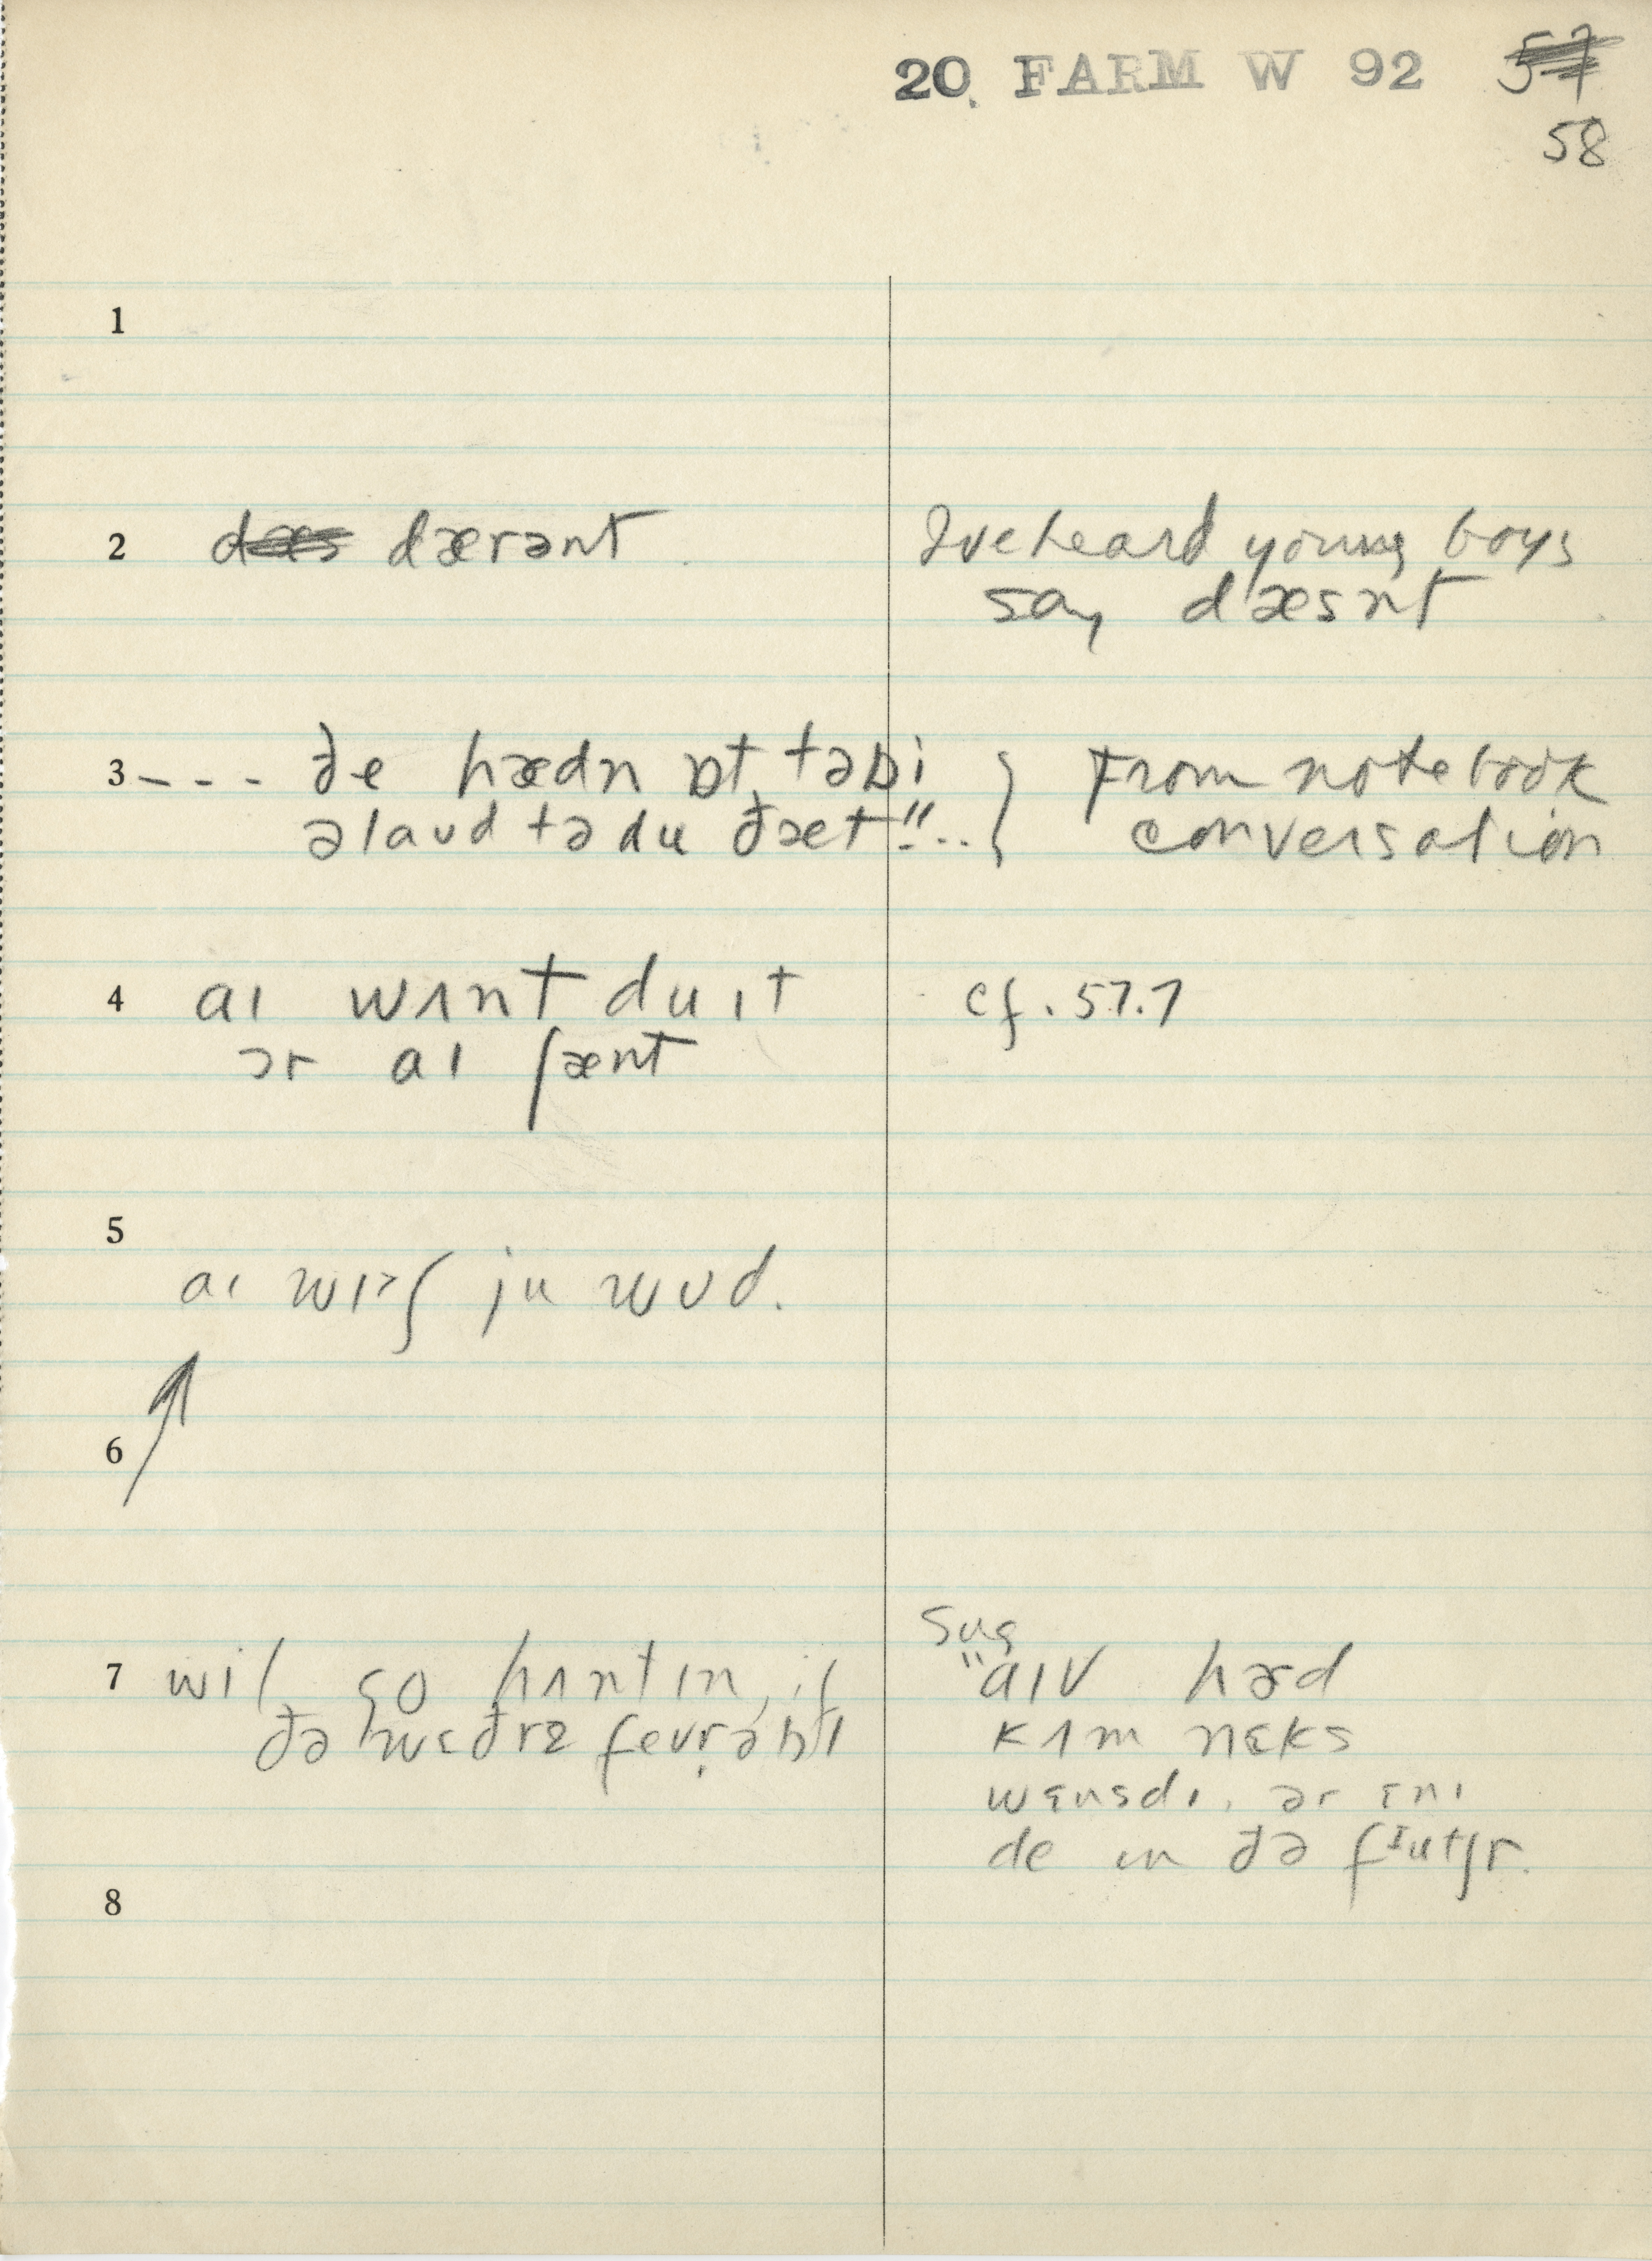 20. FARM W 92 57
58
1
2 dæs dærənt
I've heard young boys
say dæsnt
3 --- ðe hædn ɒt təbi
əlaud tə du ðæt"...
} From notebook
conversation
4 aɪ wʌnt du ɪt
ɔr aɪ ʃænt
cf. 57.7
5
aɪ wɪʃ ju wʊd.
6
7 wil go hʌntɪn, if
ðə wɛðrz fevrəbl
sug
"aɪv hərd
kʌm nɛks
wɛnsdɪ. ər ɛnɪ
de ɪn ðə fɪutʃr.
8